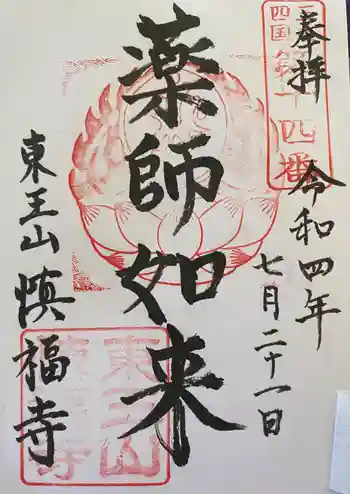 奉拝
令和四年
七月二十一日
薬師如来
東王山
慎福寺
四国
四番
東王山